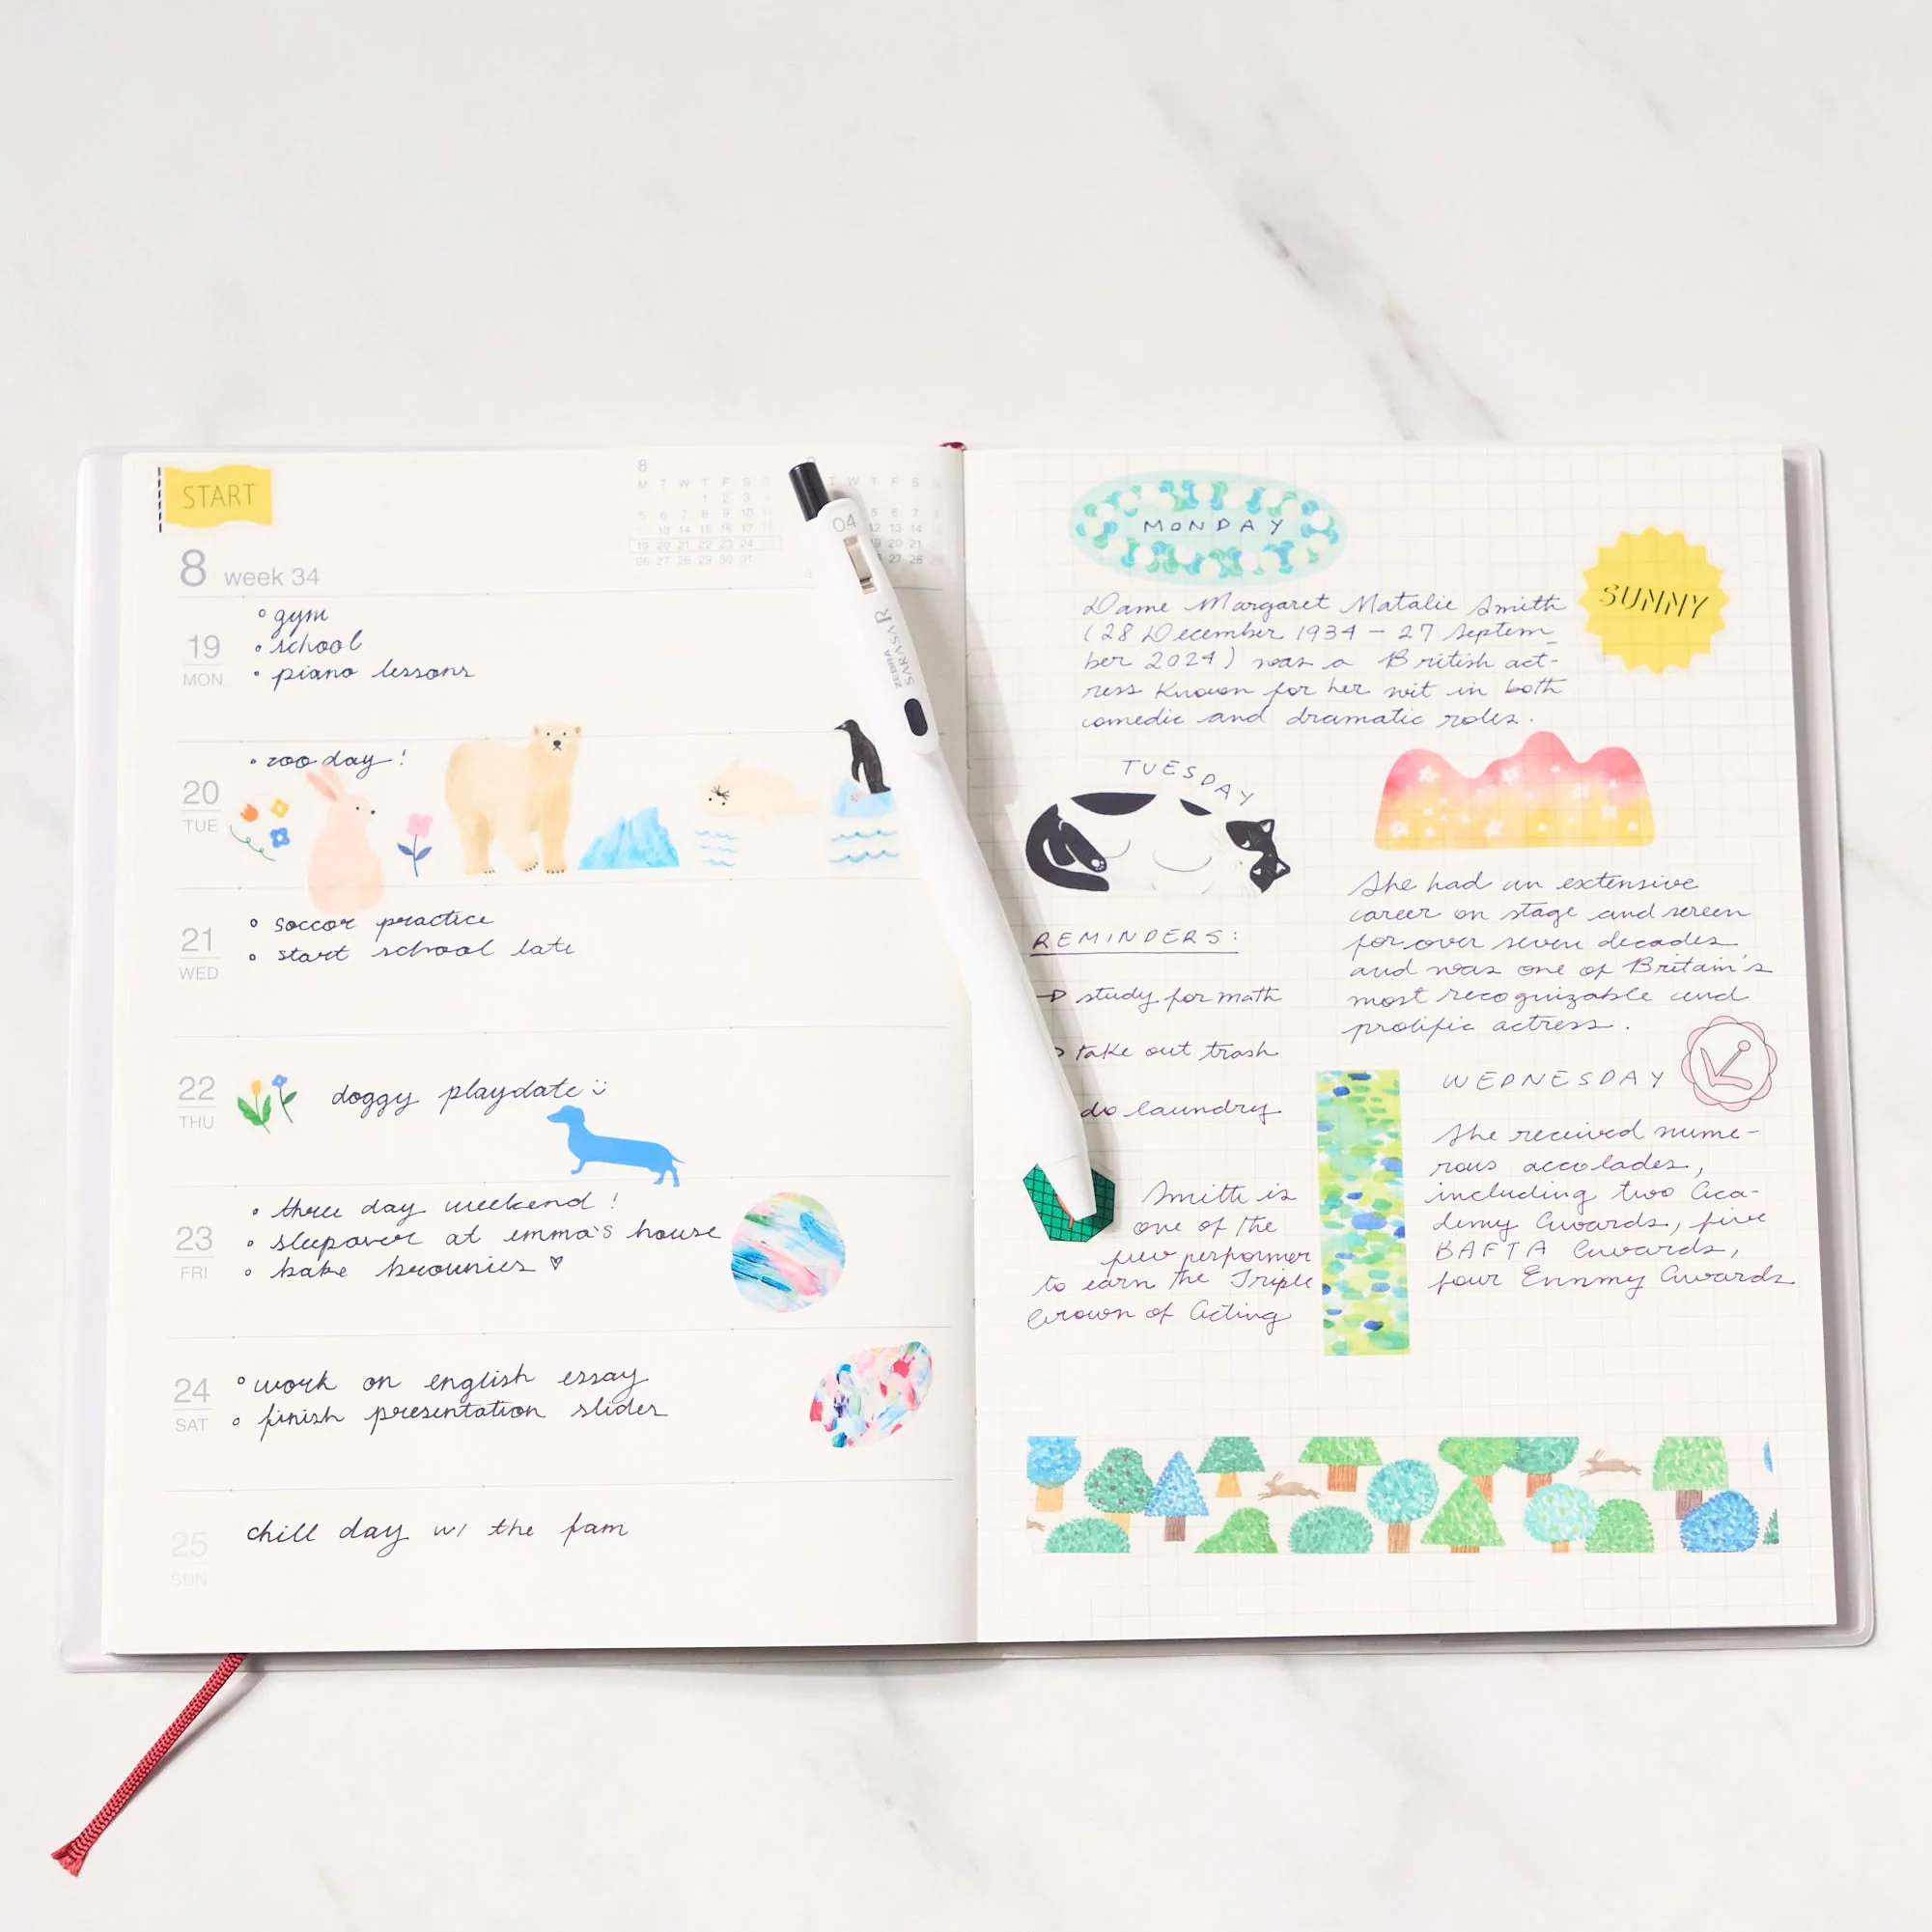 START
8 week 34
19
MON
° gym
• school
• piano lessons
20
TUE
• zoo day!
21
WED
° soccor practice
° start school late
22
THU
doggy playdate
23
FRI
• three day weekend!
• sleepover at emma's house
° bake brownies ♡
24
SAT
° work on english essay
° finish presentation slides
25
SUN
chill day w/ the fam
8
M T W T F S
1 2 3
5 6 7 8 9 10
12 13 14 15 16 17
19 20 21 22 23 24
26 27 28 29 30 31
T F S
5 6 7
12 13 14
19 20 21
27 28
04
ZEBRA
SARASA R
MONDAY
SUNNY
Dame Margaret Natalie Smith
(28 December 1934 – 27 Septem-
ber 2024) was a British act-
ress known for her wit in both
comedic and dramatic roles.
TUESDAY
She had an extensive
career on stage and screen
for over seven decades
and was one of Britain's
most recognizable and
prolific actress.
REMINDERS:
→ study for math
take out trash
do laundry
Smith is
one of the
few performer
to earn the Triple
Crown of Acting
WEDNESDAY
She received nume-
rous accolades,
including two Aca-
demy Awards, five
BAFTA Awards,
four Emmy Awards